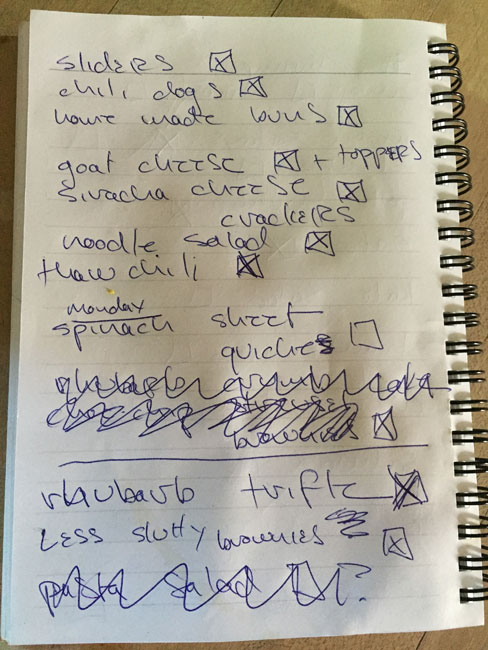 sliders
chili dogs
home made buns
goat cheese + toppers
siracha cheese
crackers
noodle salad
thaw chili
monday
spinach sheet
quiches
rhubarb crumble cake
brownies
rhubarb trifle
Less slutty brownies
pasta salad ?